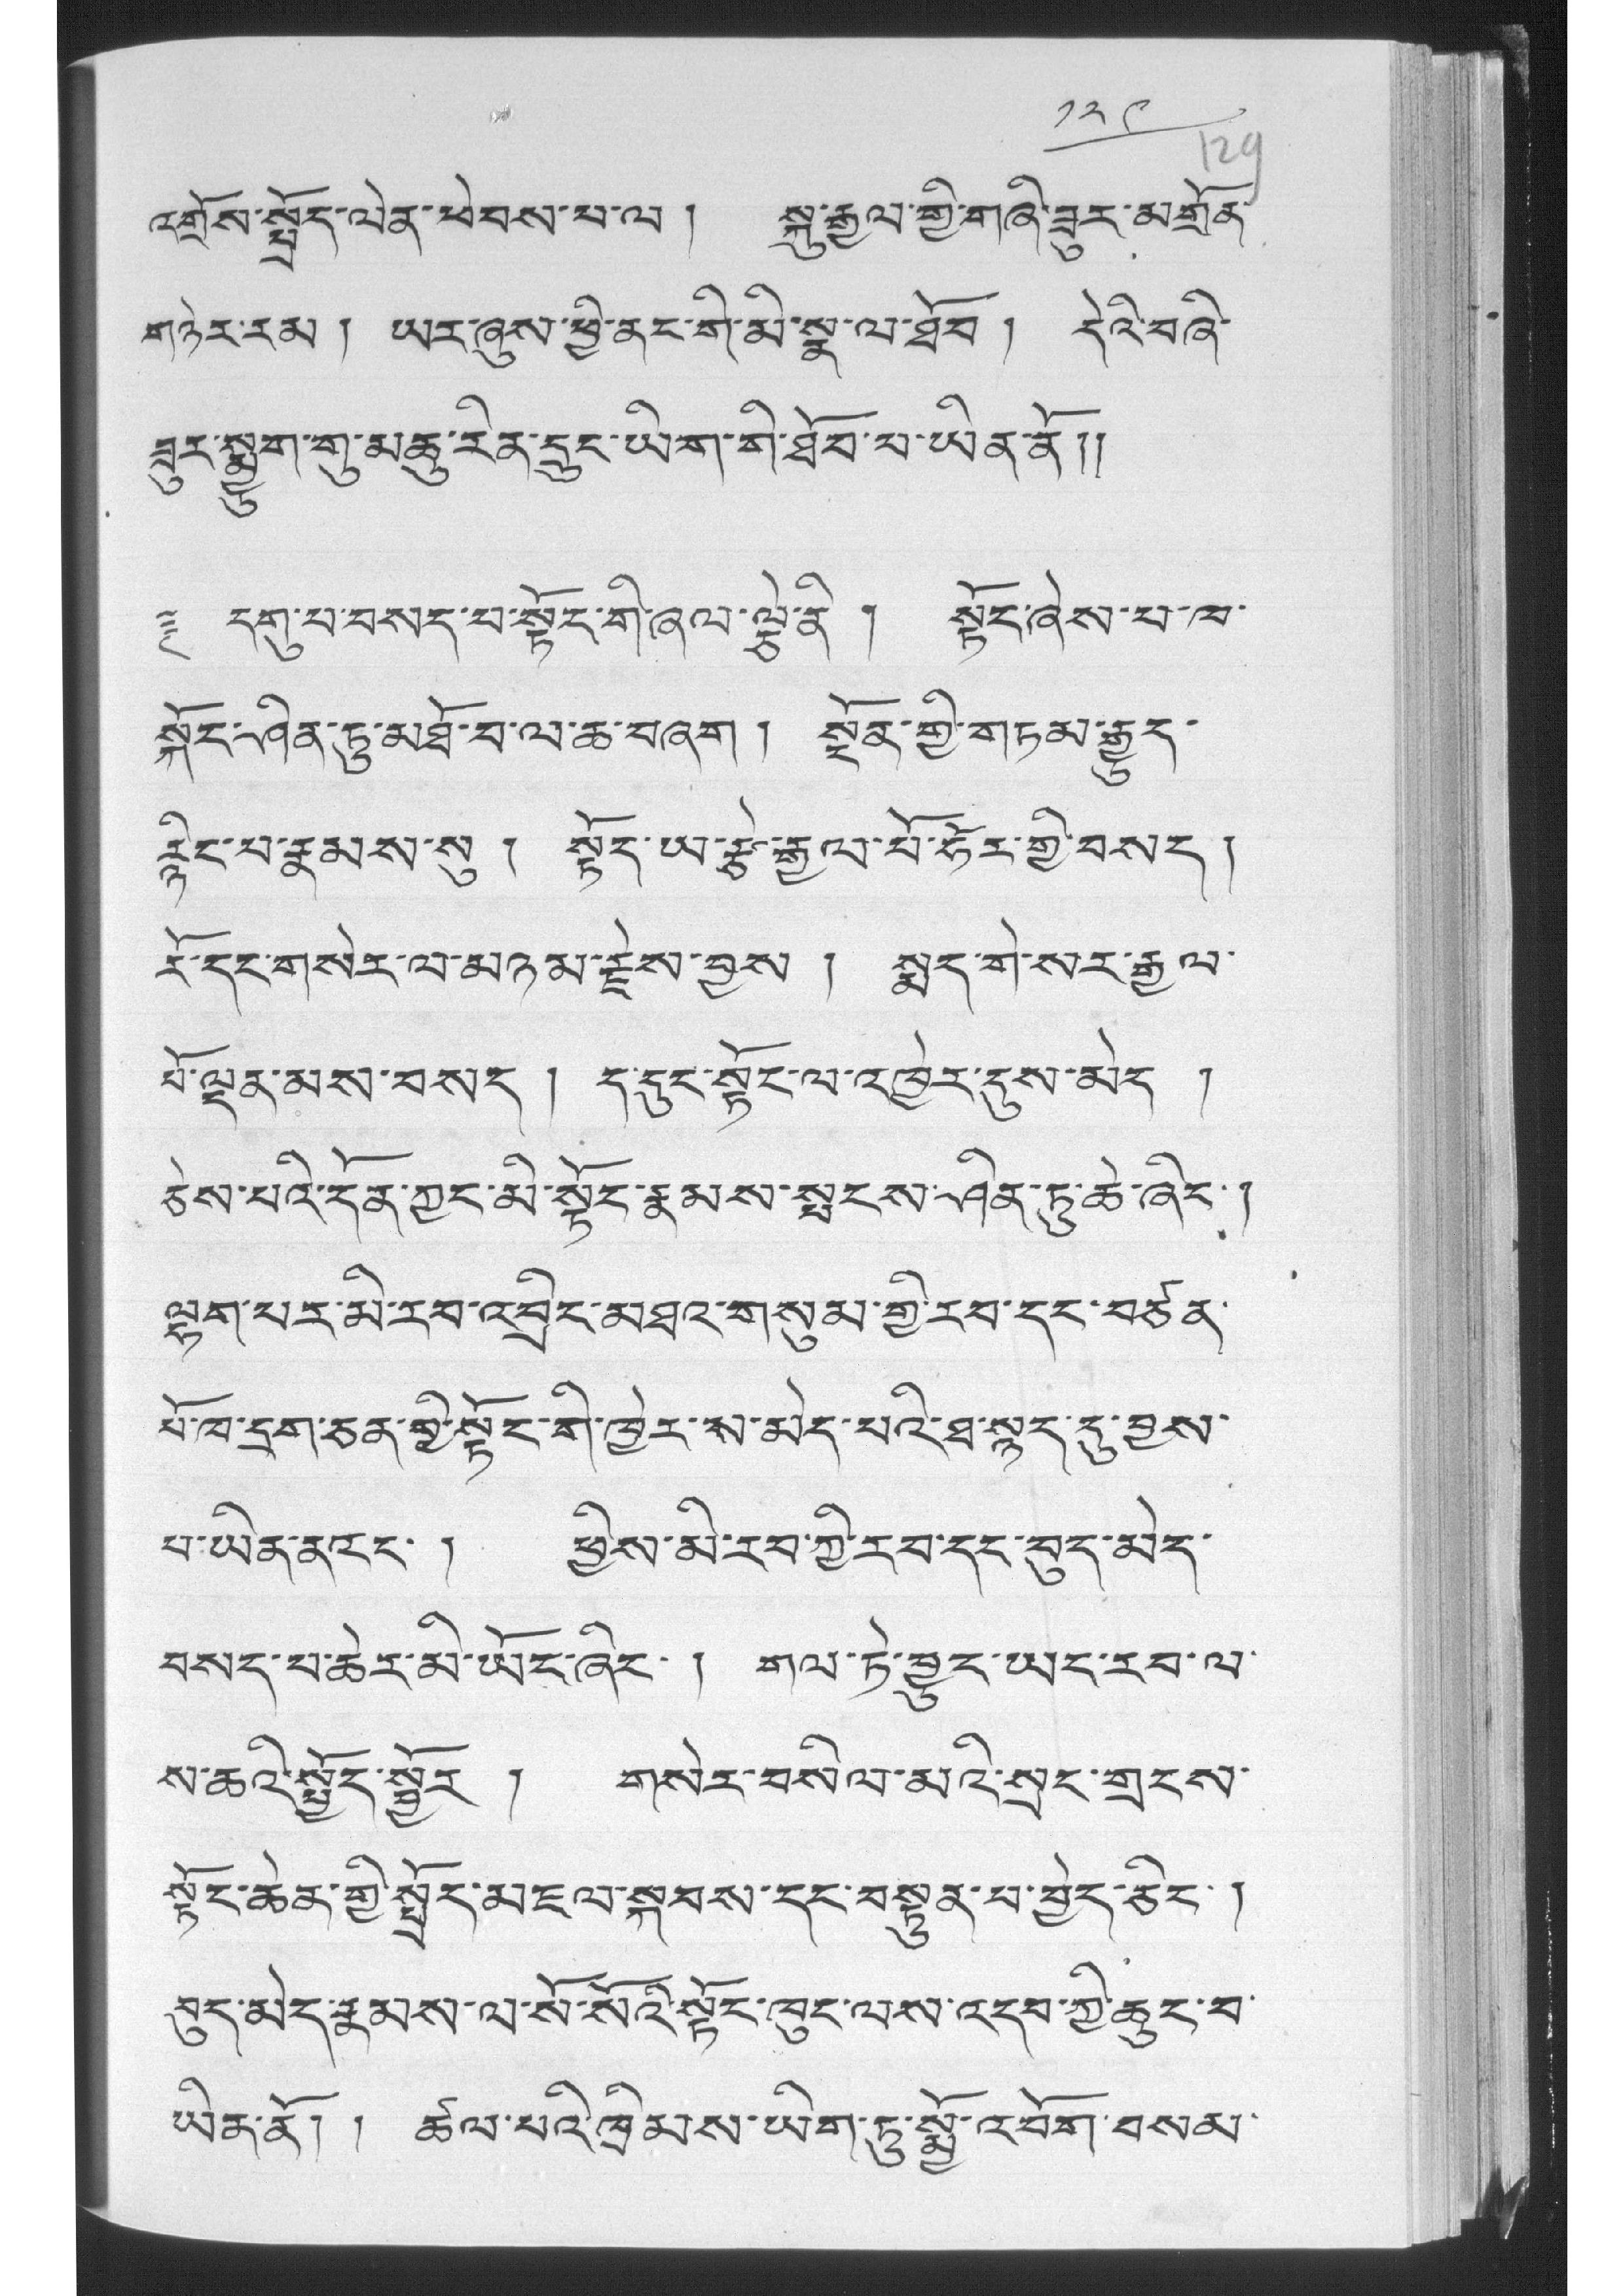 ༡༢༩
129
འགྲོས་སྤྲོད་ལེན་ཕེབས་པ་ལ། སྐུ་རྒྱལ་གྱི་གཞི་ཟུར་མགྲོན་
གཉེར་རམ། ཡར་ཞུས་ཕྱི་ནང་གི་མི་སྣ་ལ་ཐོབ། དེའི་བཞི་
ཟུར་སྨྱུག་གུ་མཆུ་རིན་དྲུང་ཡིག་གི་ཐོབ་པ་ཡིན་ནོ།།
དགུ་པ་བསད་པ་སྟོང་གི་ཞལ་ལྕེ་ནི། སྟོང་ཞེས་པ་ཁ་
སྐོང་ཤིན་ཏུ་མཐོ་བ་ལ་ཆ་བཞག། སྔོན་གྱི་གཏམ་རྒྱུད་
རྙིང་པ་རྣམས་སུ། སྟོད་ཡ་རྩེ་རྒྱལ་པོ་ཧོར་གྱི་བསད།
རོ་དང་གསེར་ལ་མཉམ་རྗེས་བྱས། སྨད་གེ་སར་རྒྱལ་
པོ་ལྡན་མས་བསད། ད་དུང་སྟོང་ལ་འཁྱེར་དུས་མེད།
ཅེས་པའི་དོན་ཀྱང་མི་སྟོང་རྣམས་སྤངས་ཤིན་ཏུ་ཆེ་ཞིང་།
ལྷག་པར་མི་རབ་འབྲིང་མཐའ་གསུམ་གྱི་རབ་དང་བཙན་
པོ་ཁ་དྲག་ཅན་གྱི་སྟོང་གི་ཁྱེར་ས་མེད་པའི་ཐ་སྙད་དུ་བྱས་
པ་ཡིན་ནའང་། ཕྱིས་མི་རབ་ཀྱི་རབ་དང་བུད་མེད་
བསད་པ་ཆེར་མི་ཡོང་ཞིང་། གལ་ཏེ་བྱུང་ཡང་རབ་ལ་
ས་ཆའི་སྤྱོད་སྦྱོར། གསེར་བསིལ་མའི་སྲང་གྲངས་
སྟོང་ཆེན་གྱི་སྤྲོད་མཇལ་སྐབས་དང་བསྟུན་པ་བྱེད་ཅིང་།
བུད་མེད་རྣམས་ལ་སོ་སོའི་སྟོང་ཁུང་ལས་འདབ་ཀྱི་ཆུང་བ་
ཡིན་ནོ།། ཚལ་པའི་ཁྲིམས་ཡིག་ཏུ་སྨྱོ་འབོག་བསམ་